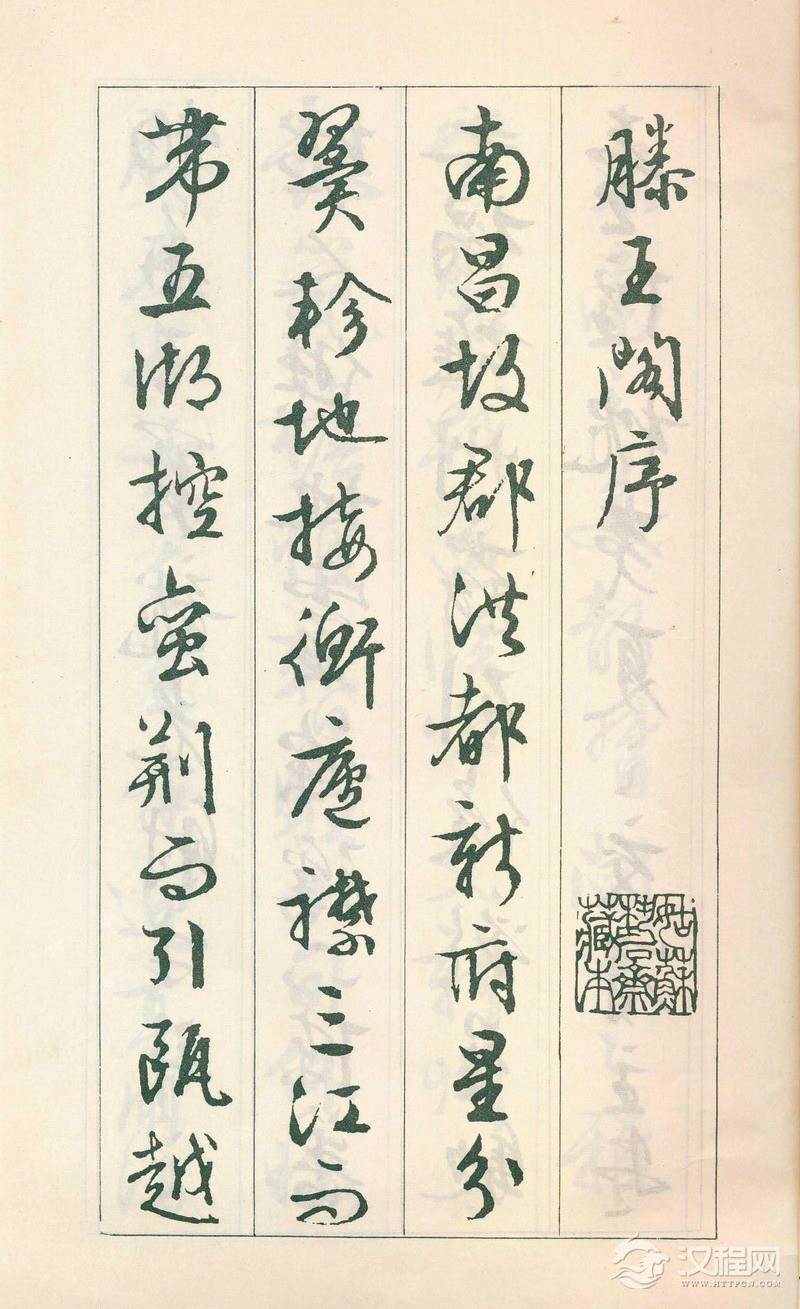 滕王阁序
南昌故郡洪都新府星分
翼轸地接衡庐襟三江而
带五湖控蛮荆而引瓯越
姑苏
藏本
汉程网
WWW.HTTPCN.COM